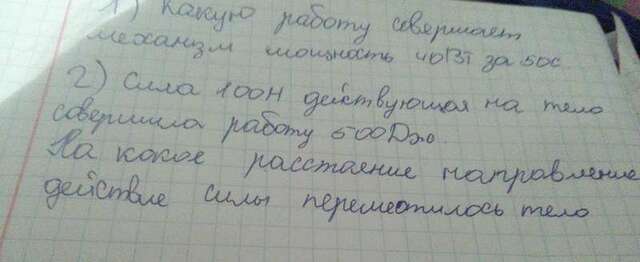 1) Какую работу совершает
механизм мощность 40Вт за 50с
2) Сила 100Н действующая на тело
совершила работу 500Дж.
На какое расстоение направление
действие силы переместилось тело